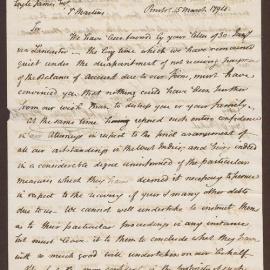 Tayle James, Esqr
St Martins
Bristol 15 March 1794.
Sir
We have been favored by your letter of 30 Janry
via Leicester — the long time which we have remained
quiet under the disappointment of not receiving payment
of the Balance of account due to our Firm, must have
convinced you that nothing could have been further
from our wish than to disturb you or your Family.
At the same time having reposed such entire confidence
in our Attorneys in respect to the final arrangement of
all our outstandings in the West Indies; and being indeed
in a considerable degree uninformed of the particular
measures which they have deemed it necessary to pursue
in respect to the recovery of yours & many other debts
due to us. We cannot well undertake to instruct them
as to their particular proceedings in any instance
but must leave it to them to conclude what they have
with so much good will undertaken on our behalf.